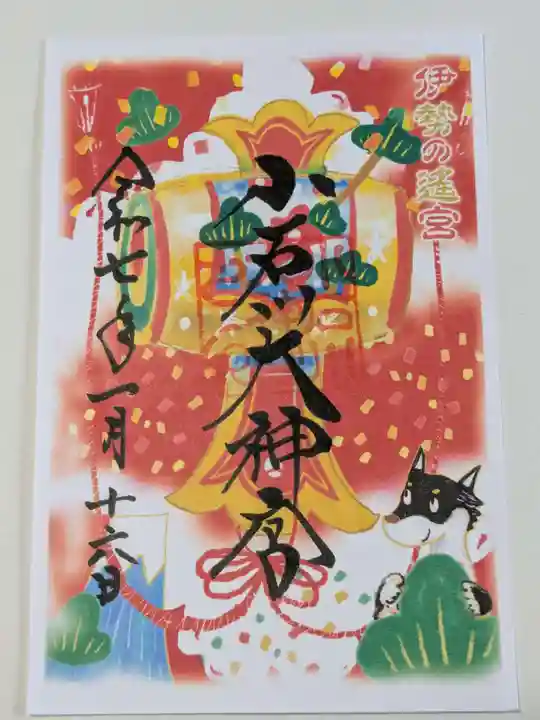 伊勢の遥宮
小石川大神宮
令和七年一月十六日